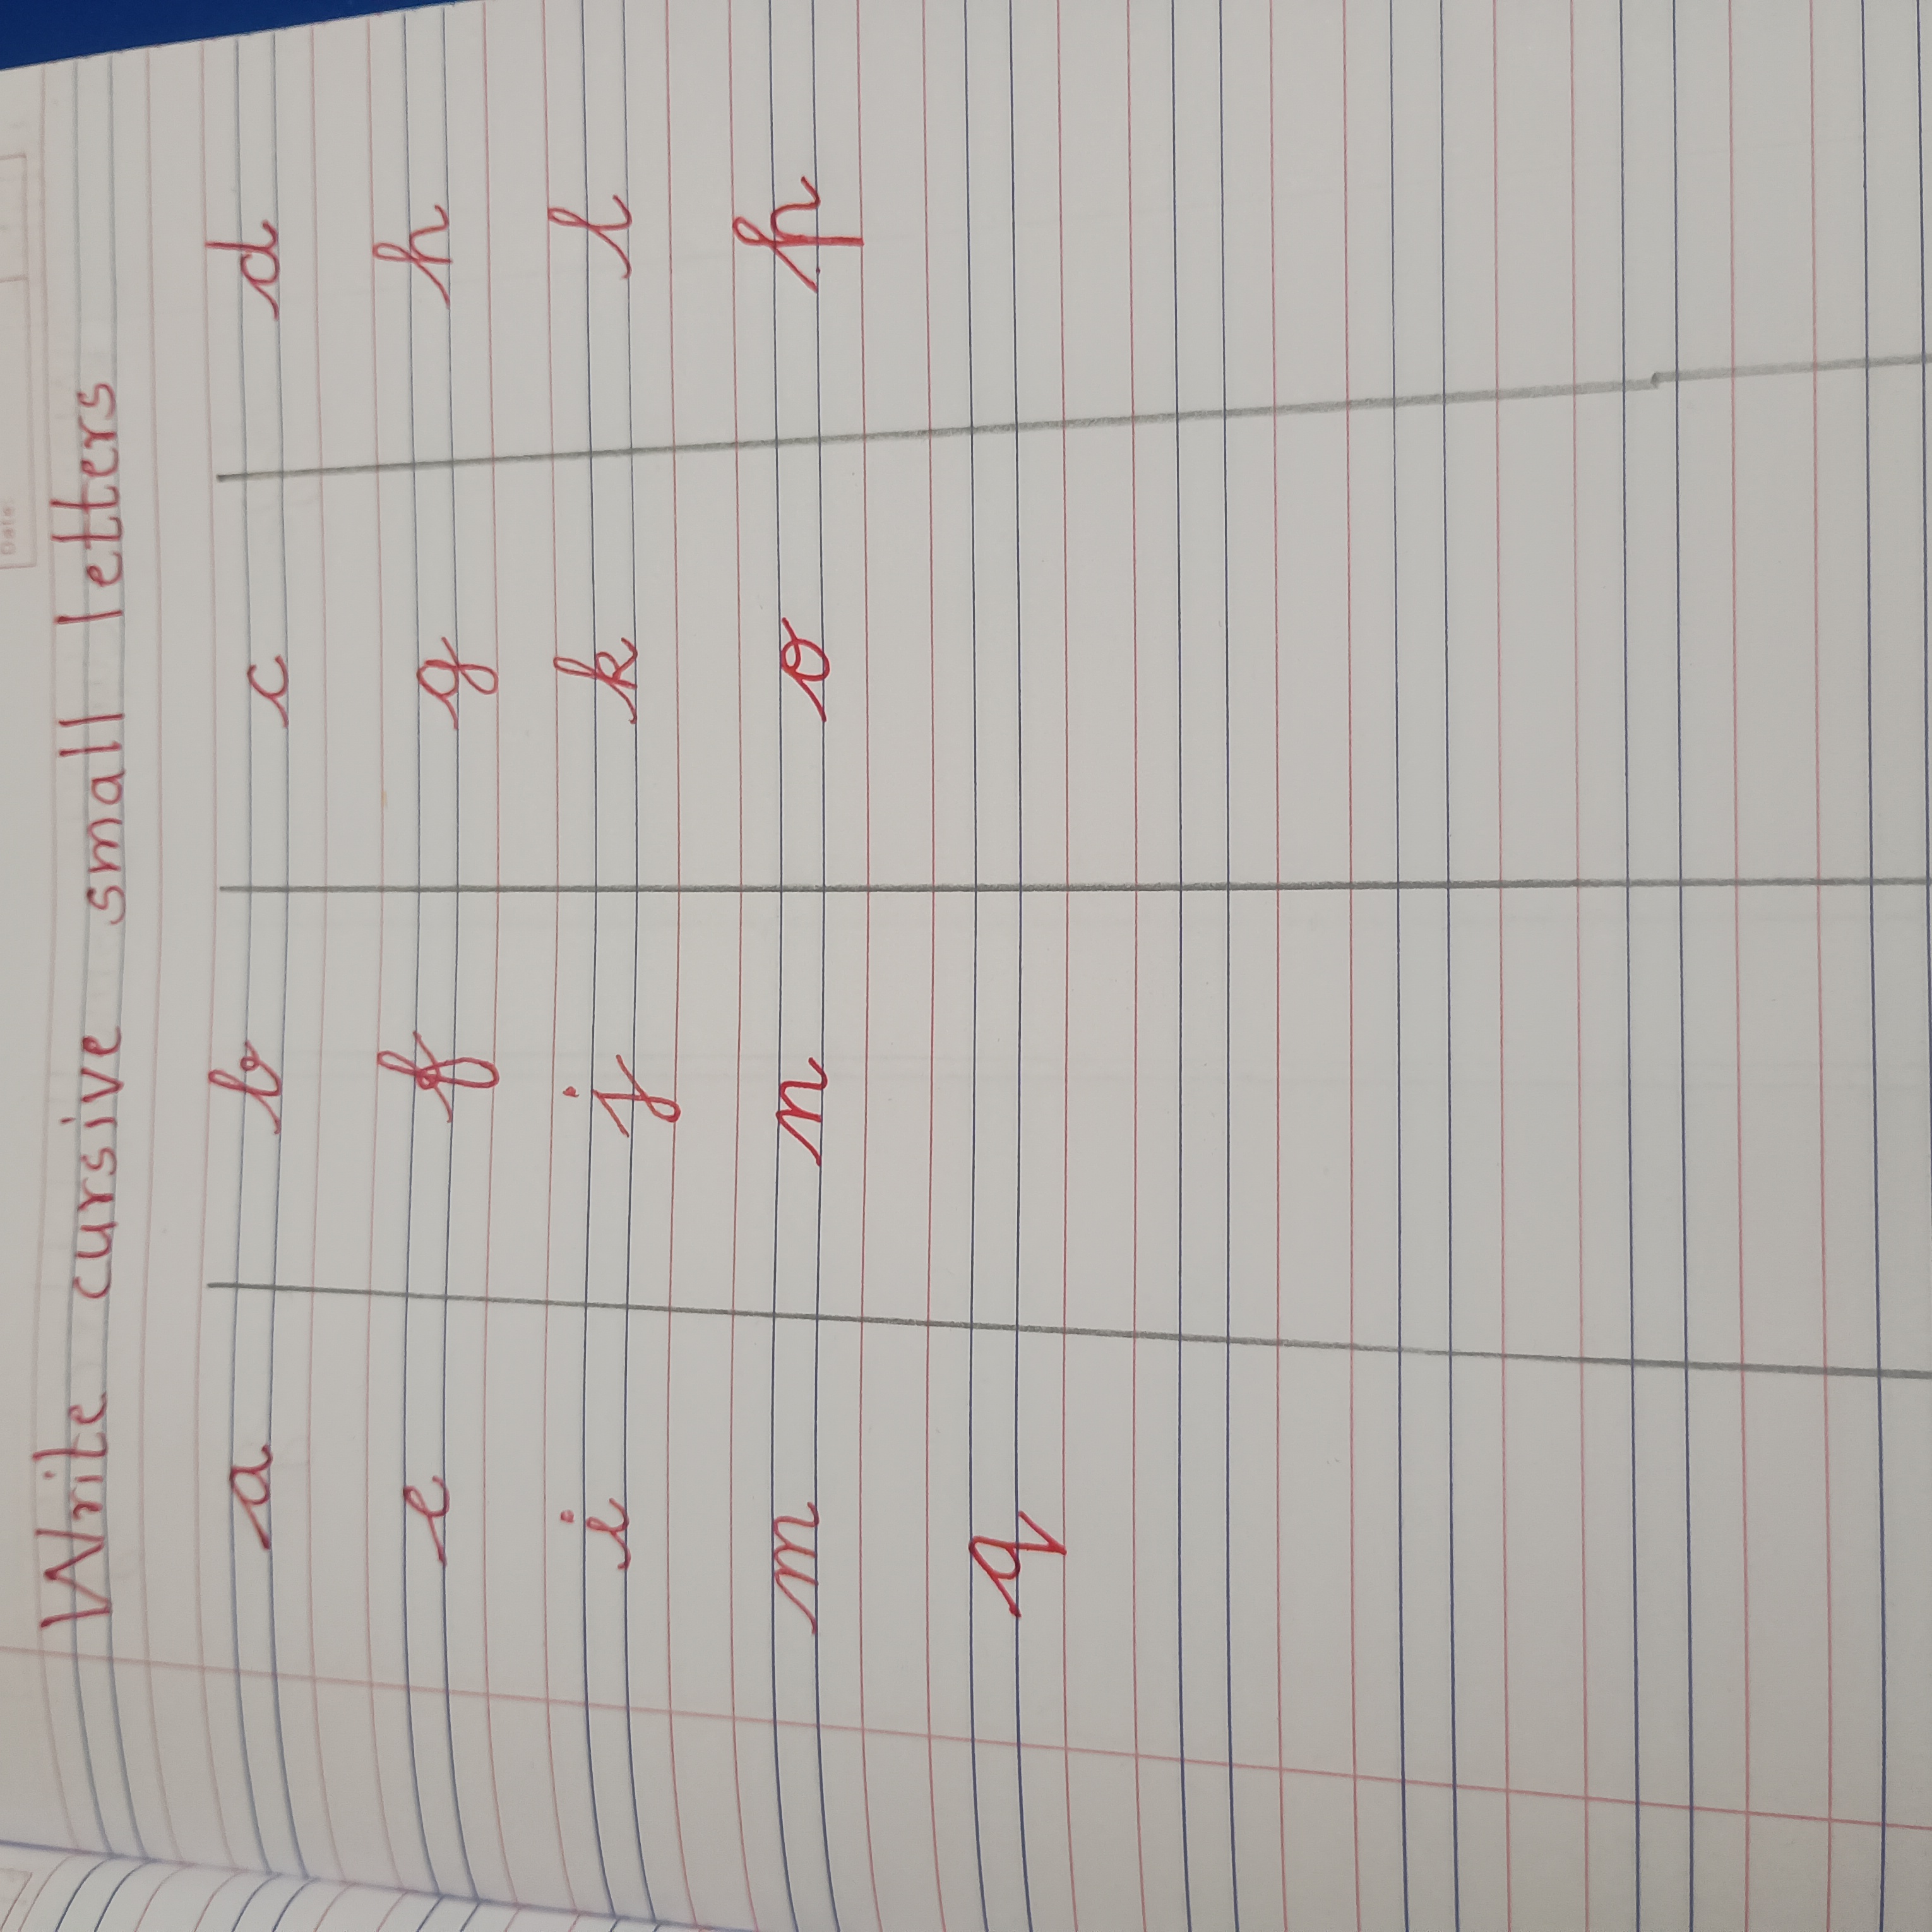 Date:
Write cursive small letters
a b c d
e f g h
i j k l
m n o p
q